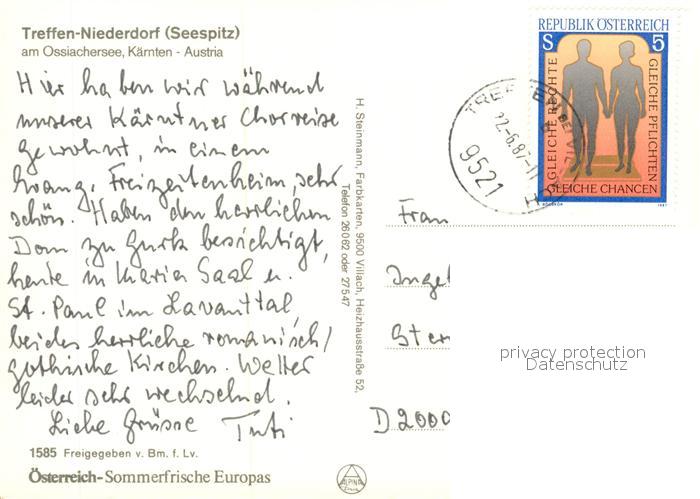 Treffen-Niederdorf (Seespitz)
am Ossiachersee, Kärnten - Austria
Hier haben wir während
unserer Kärntner Chorreise
gewohnt, in einem
Evang. Freizeitenheim, sehr
schön. Haben den herrlichen
Dom zu Gurk besichtigt,
heute in Maria Saal u.
St. Paul im Lavanttal,
beides herrliche romanisch/
gothische Kirchen. Wetter
leider sehr wechselnd.
Liebe Grüsse Tuti
1585 Freigegeben v. Bm. f. Lv.
Österreich-Sommerfrische Europas
H. Steinmann, Farbkarten, 9500 Villach, Heizhausstraße 52,
Telefon 26062 oder 27547
ALPINA
REPUBLIK ÖSTERREICH
S 5
GLEICHE RECHTE
GLEICHE PFLICHTEN
GLEICHE CHANCEN
1987
TREFFEN BEI VIL
22.-6.87-11
9521
Frau
Inge
Ster
D 2000
privacy protection
Datenschutz